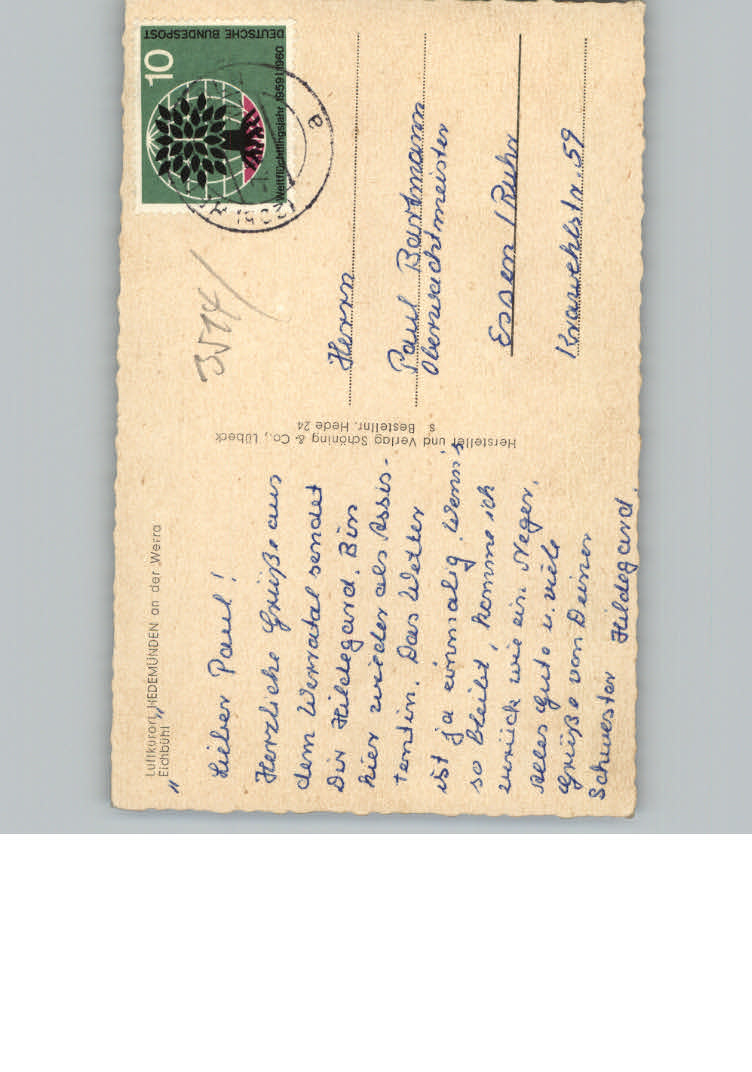 Luftkurort HEDEMÜNDEN an der Werra
Eichbühl
Lieber Paul!
Herzliche Grüße aus
dem Werratal sendet
Dir Hildegard. Bin
hier wieder als Assis-
tentin. Das Wetter
ist ja einmalig. Wenn's
so bleibt, komme ich
zurück wie ein Neger.
Alles Gute u. viele
Grüße von Deiner
Schwester Hildegard.
Hersteller und Verlag Schöning & Co., Lübeck
s Bestellnr. Hede 24
3514
DEUTSCHE BUNDESPOST
10
Weltflüchtlingsjahr 1959/1960
e
Herrn
Paul Bartmann
Oberwachtmeister
Essen/Ruhr
Krawehlstr. 59